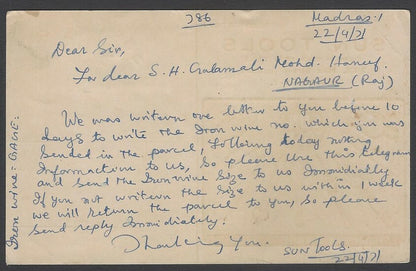 786
Madras.1
22/4/71
Dear Sir,
For dear S. H. Gulamali Mohd. Haneef.
NAGAUR (Raj)
We was writern one letter to you before 10
days to write the Iron wire no. which you was
Sended in the parcel, today nothing
Information to us, So please Use this telegram
and send the Iron wire Size to us Immidiatly
If you not writern the Size to us with in 1 week
we will return the parcel to you, So please
send reply Immidiately.
Thanking You.
SUN TOOLS.
22/4/71
Iron wire = GAUGE: